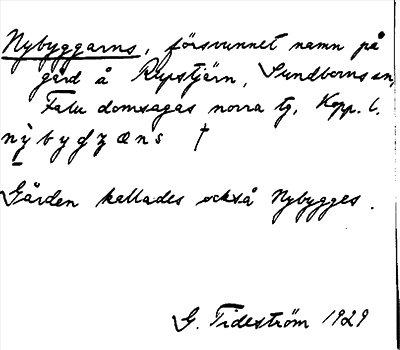 Nybyggarns, försvunnet namn på
gård å Repstjärn, Sundborns sn,
Falu domsagas norra tg, Kopp. l.
nybygʒæns †
Gården kallades också Nybygges.
G. Tideström 1929